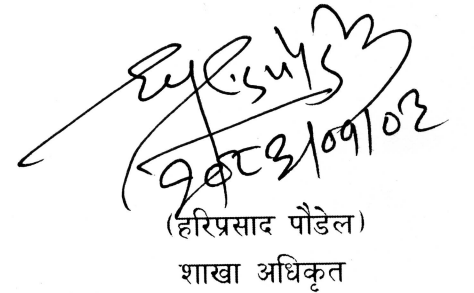 २०८३/०१/०३
(हरिप्रसाद पौडेल)
शाखा अधिकृत